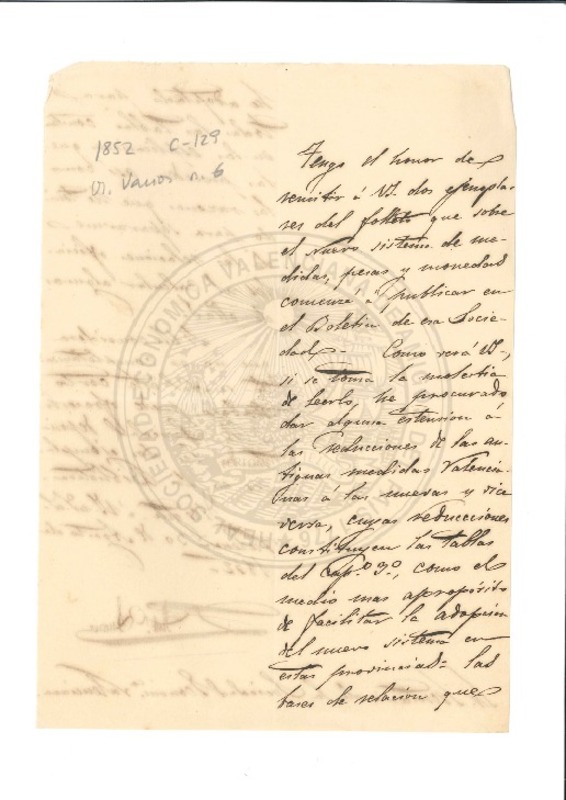 1852 C-129
VI. Varios n. 6
Tengo el honor de
remitir á VS. dos ejempla-
res del folleto que sobre
el nuevo sistema de me-
didas, pesas y monedas
comencé á publicar en
el Boletin de esa Socie-
dad. Como verá VS,
si se toma la molestia
de leerlo, he procurado
dar alguna estension á
las reducciones de las an-
tiguas medidas Valencia-
nas á las nuevas y vice
versa, cuyas reducciones
constituyen las tablas
del Cap.º 3.º, como el
medio mas apropósito
de facilitar la adopcion
del nuevo sistema en
estas provincias: las
bases de relacion que
SOCIEDAD ECONOMICA VALENCIA
1776